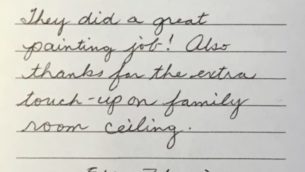 They did a great
painting job! Also
thanks for the extra
touch-up on family
room ceiling.